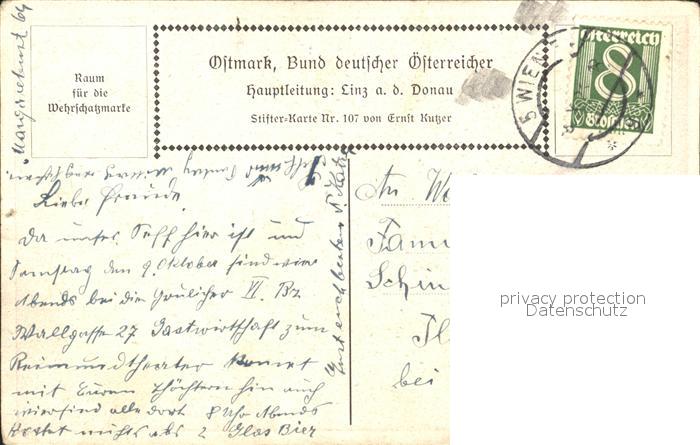 Raum
für die
Wehrschatzmarke
Ostmark, Bund deutscher Österreicher
Hauptleitung: Linz a. d. Donau
Stifter-Karte Nr. 107 von Ernst Kutzer
Österreich
8
5 WIEN
64
Liebe Freunde
Da unser Seff hier ist und
Samstag den 9. Oktober sind wir
Abends bei die VI. Bz
Wallgasse 27 Gastwirtschaft zum
Reimundtheater kommt
mit Euren Töchtern hin auch
wir sind alle dort 8 Uhr Abends
kostet nichts als 2 Glas Bier
An
Fam
Schin
bei
privacy protection
Datenschutz